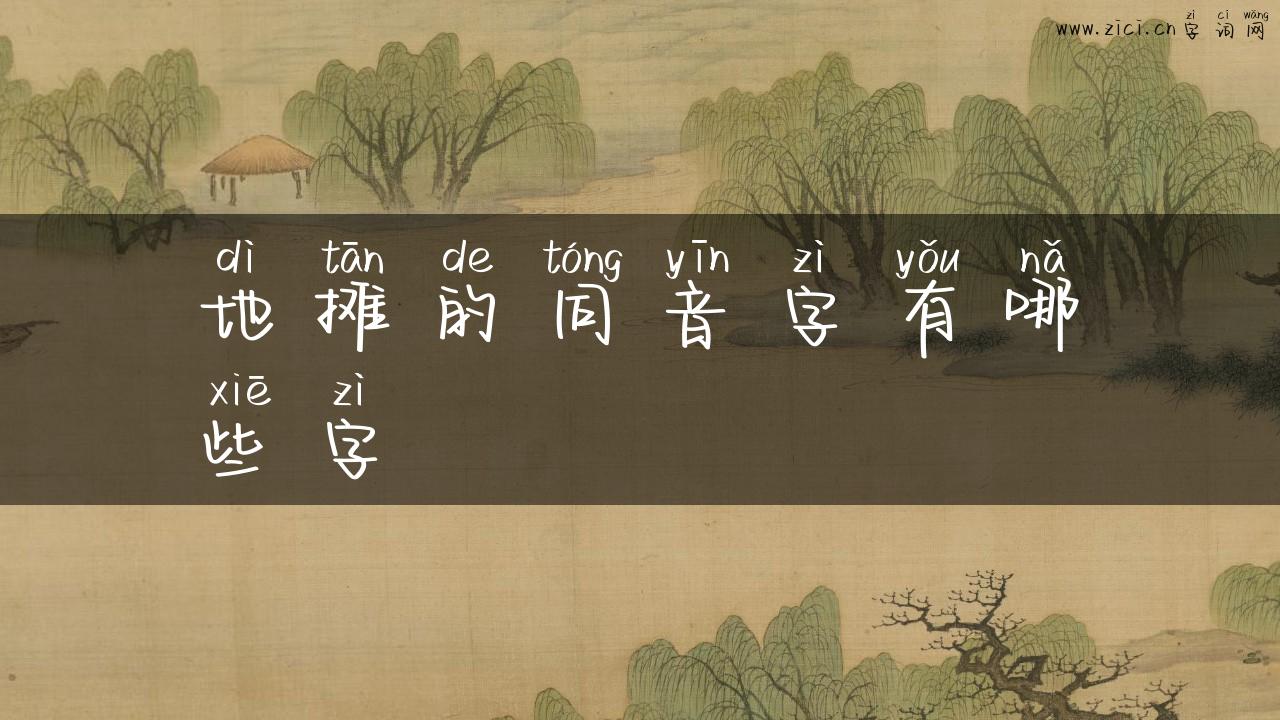 zì cí wǎng
www.zici.cn 字 词 网
dì tān de tóng yīn zì yǒu nǎ
地 摊 的 同 音 字 有 哪
xiē zì
些 字